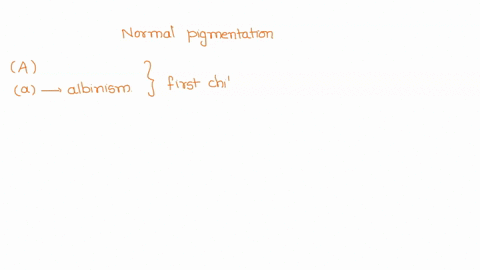 Normal pigmentation
(A)
(a) → albinism } first chi